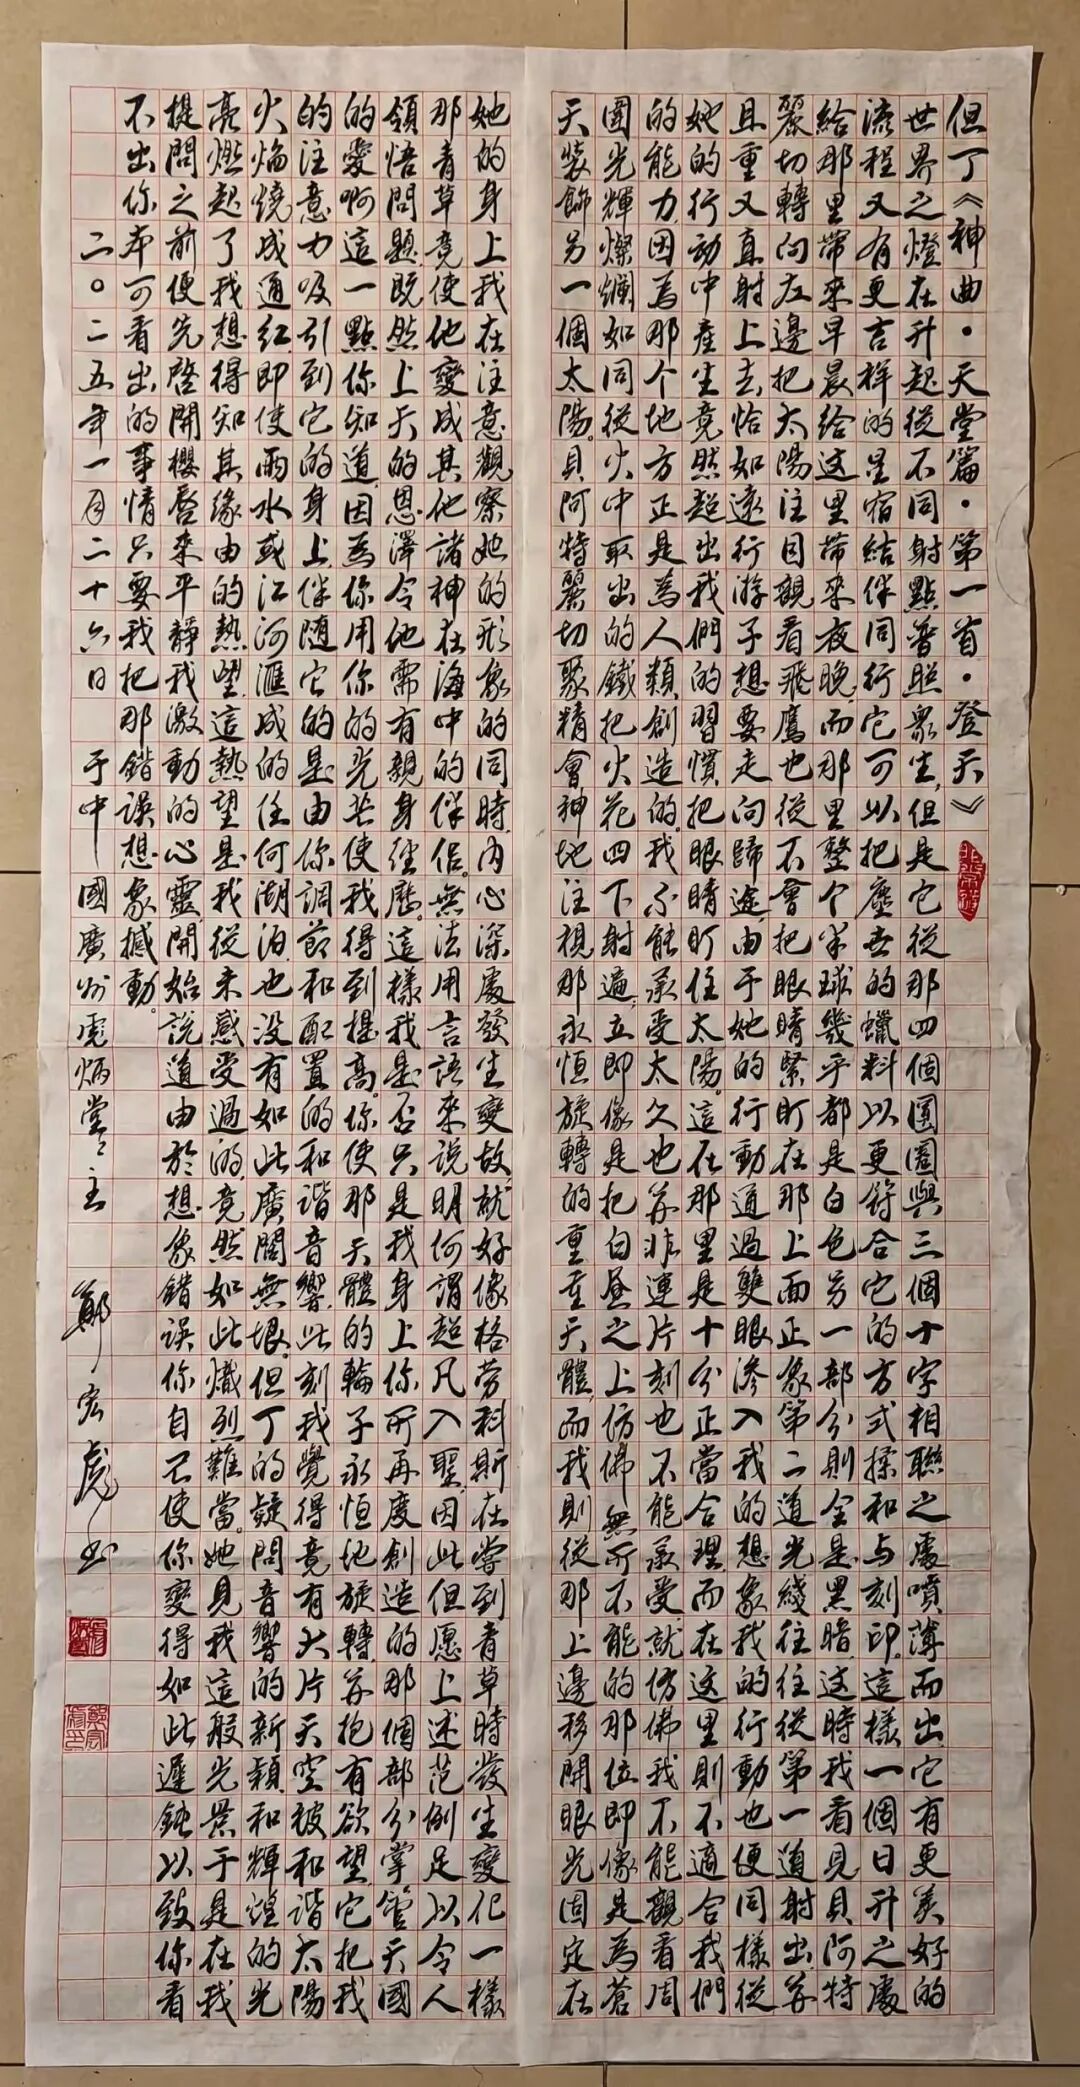 但丁《神曲·天堂篇·第一首·登天》
世界之燈在升起從不同射點普照衆生但是它從那四個圓圈與三個十字相聯之處噴薄而出它有更美好的
流程又有更吉祥的星宿結伴同行它可以把塵世的蠟料以更符合它的方式揉和与刻印這樣一個日升之處
給那里帶來早晨給这里帶來夜晚而那里整个半球幾乎都是白色另一部分則全是黑暗这時我看見貝阿特
麗切轉向左邊把太陽注目觀看飛鷹也從不會把眼睛緊盯在那上面正象第二道光綫往往從第一道射出并
且重又直射上去恰如遠行游子想要走向歸途由于她的行動通過雙眼滲入我的想象我的行動也便同樣從
她的行動中產生竟然超出我們的習慣把眼睛盯住太陽。這在那里是十分正當合理而在这里則不適合我們
的能力因為那个地方正是為人類創造的我不能承受太久也并非連片刻也不能承受就仿佛我不能觀看周
圍光輝燦爛如同從火中取出的鐵把火花四下射遍立即像是把白昼之上仿佛無所不能的那位即像是為蒼
天裝飾另一個太陽。貝阿特麗切聚精會神地注視那永恒旋轉的重重天體而我則從那上邊移開眼光固定在
她的身上我在注意觀察她的形象的同時內心深處發生變故就好像格劳科斯在尝到青草時發生變化一樣
那青草竟使他變成其他諸神在海中的伴侶。無法用言語來說明何謂超凡入聖因此但愿上述范例足以令人
領悟問題既然上天的恩澤令他需有親身經歷。這樣我是否只是我身上你所再度創造的那個部分掌管天國
的愛啊這一點你知道因為你用你的光芒使我得到提高。你使那天體的輪子永恒地旋轉并抱有欲望它把我
的注意力吸引到它的身上伴随它的是由你調節和配置的和諧音響此刻我覺得竟有大片天空被和諧太陽
火焰燒成通紅即使雨水或江河滙成的任何湖泊也没有如此廣闊無垠。但丁的疑問音響的新穎和輝煌的光
亮燃起了我想得知其緣由的熱望這熱望是我從來感受過的竟然如此熾烈難當。她見我這般光景于是在我
提問之前便先啓開櫻唇來平靜我激動的心靈開始說道由於想象錯誤你自己使你變得如此遲鈍以致你看
不出你本可看出的事情只要我把那錯誤想象撼動。
二〇二五年一月二十六日 于中國廣州虎炳堂主 鄭宏彪書